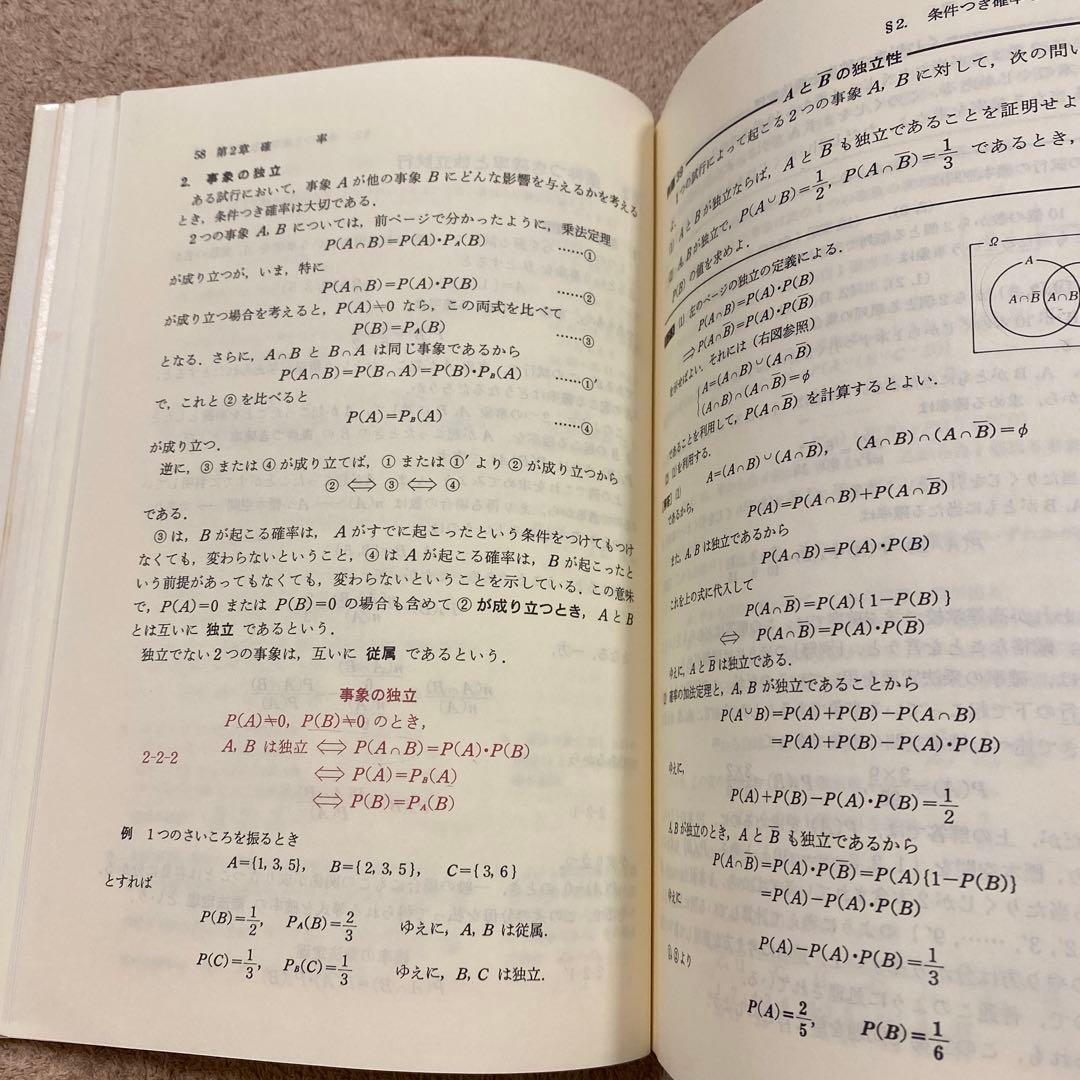 58 第2章 確 率
2. 事象の独立
ある試行において，事象 A が他の事象 B にどんな影響を与えるかを考える
とき，条件つき確率は大切である．
2つの事象 A, B については，前ページで分かったように，乗法定理
P(A∩B)=P(A)・P_A(B) ……①
が成り立つが，いま，特に
P(A∩B)=P(A)・P(B) ……②
が成り立つ場合を考えると，P(A)≠0 なら，この両式を比べて
P(B)=P_A(B) ……③
となる．さらに，A∩B と B∩A は同じ事象であるから
P(A∩B)=P(B∩A)=P(B)・P_B(A) ……①′
で，これと ② を比べると
P(A)=P_B(A) ……④
が成り立つ．
逆に，③ または ④ が成り立てば，① または ①′ より ② が成り立つから
② ⟺ ③ ⟺ ④
である．
③ は，B が起こる確率は，A がすでに起こったという条件をつけてもつけ
なくても，変わらないということ，④ は A が起こる確率は，B が起こったと
いう前提があってもなくても，変わらないということを示している．この意味
で，P(A)=0 または P(B)=0 の場合も含めて ② が成り立つとき，A と B
とは互いに 独立 であるという．
独立でない2つの事象は，互いに 従属 であるという．
事象の独立
P(A)≠0, P(B)≠0 のとき，
2-2-2 A, B は独立 ⟺ P(A∩B)=P(A)・P(B)
⟺ P(A)=P_B(A)
⟺ P(B)=P_A(B)
例 1つのさいころを振るとき
A={1, 3, 5}, B={2, 3, 5}, C={3, 6}
とすれば
P(B)=1/2, P_A(B)=2/3 ゆえに，A, B は従属．
P(C)=1/3, P_B(C)=1/3 ゆえに，B, C は独立．
§2. 条件つき確率
A と B̅ の独立性
39 1つの試行によって起こる2つの事象 A, B に対して，次の問い
よ．
A と B が独立ならば，A と B̅ も独立であることを証明せよ
A, B が独立で，P(A∪B)=1/2, P(A∩B̅)=1/3 であるとき，
P(B) の値を求めよ．
(1) 左のページの独立の定義による．
P(A∩B)=P(A)・P(B)
⟹ P(A∩B̅)=P(A)・P(B̅)
を示せばよい．それには（右図参照）
A=(A∩B)∪(A∩B̅)
(A∩B)∩(A∩B̅)=φ
であることを利用して，P(A∩B̅) を計算するとよい．
(1)を利用する．
Ω
A
A∩B̅ A∩B
(1) A=(A∩B)∪(A∩B̅), (A∩B)∩(A∩B̅)=φ
であるから，
P(A)=P(A∩B)+P(A∩B̅)
また，A, B は独立であるから
P(A∩B)=P(A)・P(B)
これを上の式に代入して
P(A∩B̅)=P(A){1−P(B)}
⟺ P(A∩B̅)=P(A)・P(B̅)
ゆえに，A と B̅ は独立である．
確率の加法定理と，A, B が独立であることから
P(A∪B)=P(A)+P(B)−P(A∩B)
=P(A)+P(B)−P(A)・P(B)
ゆえに，
P(A)+P(B)−P(A)・P(B)=1/2
A, B が独立のとき，A と B̅ も独立であるから
P(A∩B̅)=P(A)・P(B̅)=P(A){1−P(B)}
=P(A)−P(A)・P(B)
ゆえに
P(A)−P(A)・P(B)=1/3
より
P(A)=2/5, P(B)=1/6